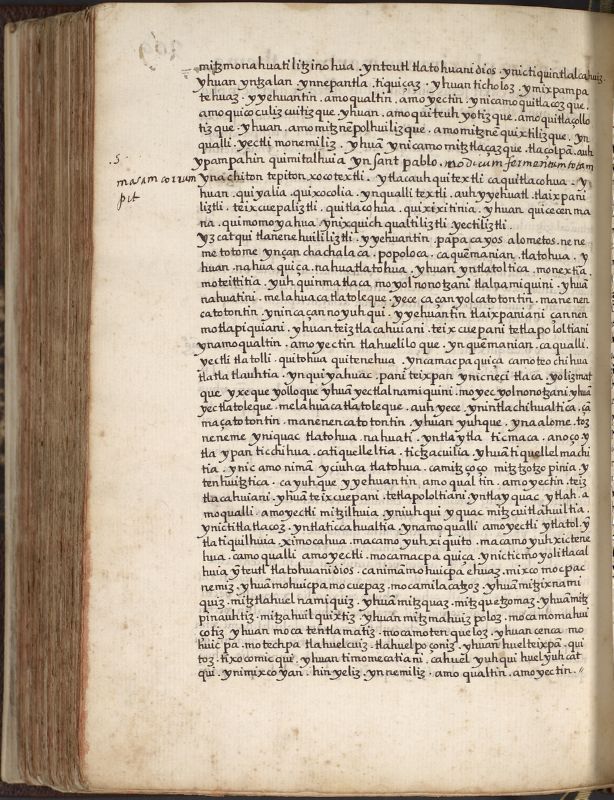 mitzmonahuatilitzinohua . ynteutl tlatohuani dios . ynictiquintlalcahuiz .
yhuan yntzalan . ynnepantla . tiquiçaz . yhuan ticholoz . ymixpampa
tehuaz . yyehuantin . amoqualtin . amo yectin . ynicamo quitlacozque .
amo quicocuitizque . yhuan . amo quiteuhyotizque . amo quitlaçollo
tizque . yhuan . amo mitznēpolhuilizque . amo mitznēquixtilizque . yn
qualli . yectli monemiliz . yhuā ynicamo mitztlaçazque . tlaçolpā . auh
ypampahin quimitalhuia yn sant pablo . modicum fermentum totam
.5.
masam corrum
pit
yna chiton tepiton xocotextli . ytlacauhqui textli ca quitlacohua . y
huan . quiyalia . quixocolia . ynqualli textli . auh yyehuatl . tlaixpani
liztli . teixcuepaliztli . quitlacohua . quixixitinia . yhuan quicecenma
na . quimomoyahua ynixquich qualtiliztli yectiliztli .
Yzcatqui tlanenehuililiztli . yyehuantin . papacayos alometos . nene
metotome ynçan chachalaca . popoloca . caquēmanian . tlatohua . y
huan . nahuaquiça . nahuatlatohua . yhuan yntlatoltica . monextia .
moteittitia . yuhquinmatlaca moyolnonotzani tlalnamiquini . yhuā
nahuatini . melahuacatlatoleque . yece ca çan yolcatotontin . manenen
catotontin . ynin caçannoyuhqui . yyehuantin tlaixpaniani çannen
motlapiquiani . yhuan teiztlacahuiani . teixcuepani tetlapololtiani
ynamoqualtin . amo yectin tlahueliloque . ynquēmanian . caqualli .
yectli tlatolli . quitohua quitenehua . yncamacpa quiça camoteochihua
tlatlatlauhtia . ynquiyahuac . pani teixpan ynicneci tlaca . yolizmat
que yxeque yolloque yhuā yectlalnamiquini . moyecyolnonotzani yhuā
yectlatoleque . melahuacatlatoleque . auh yece . ynintlachihualtica . çā
maçatotontin . manenencatotontin . yhuan yuhque . ynalome . toz
neneme yniquac tlatohua . nahuati . yntlaytla ticmaca . anoço y
tla ypan ticchihua . catiquelleltia . tictzacuilia . yhuā tiquellelmachi
tia . ynic amo nimā yciuhca tlatohua . camitzcoço mitztzotzopinia y
tenhuitztica . cayuhque yyehuantin . amo qualtin . amo yectin . teiz
tlacahuiani . yhuā teixcuepani . tetlapololtiani yntlayquac ytlah . a
moqualli . amo yectli mitzilhuia . yniuhqui yquac mitzcuitlahuiltia .
ynictitlatlacoz . yntlaticcahualtia . ynamoqualli amo yectli ytlatol . ȳ
tlatiquilhuia . ximocahua . macamo yuhxiquito . macamo yuhxictene
hua . camo qualli amo yectli . mocamacpa quiça . ynicticmoyolitlacal
huia ȳteutl tlatohuani dios . caniman mohuicpa ehuaz . mixco mocpac
nemiz . yhuā mohuicpa mocuepaz . mocamilacatzoz . yhuā mitzixnami
quiz . mitztlahuelnamiquiz . yhuā mitzquaz . mitzquetzomaz . yhuā mitz
pinauhtiz . mitzahuilquixtiz . yhuan mitzmahuizpoloz . mocamomahui
çotiz yhuan mocatentlamatiz . mocamotenqueloz . yhuan cenca mo
huicpā . motechpa tlahuelcuiz . tlahuelpoçoniz . yhuan huelteixpā . qui
toz . tixocomicqui . yhuan timomecatiani . cahuel yuhqui huel yuhcat
qui . ynimixcoyan . hin yeliz . ynnemiliz . amo qualtin . amo yectin .